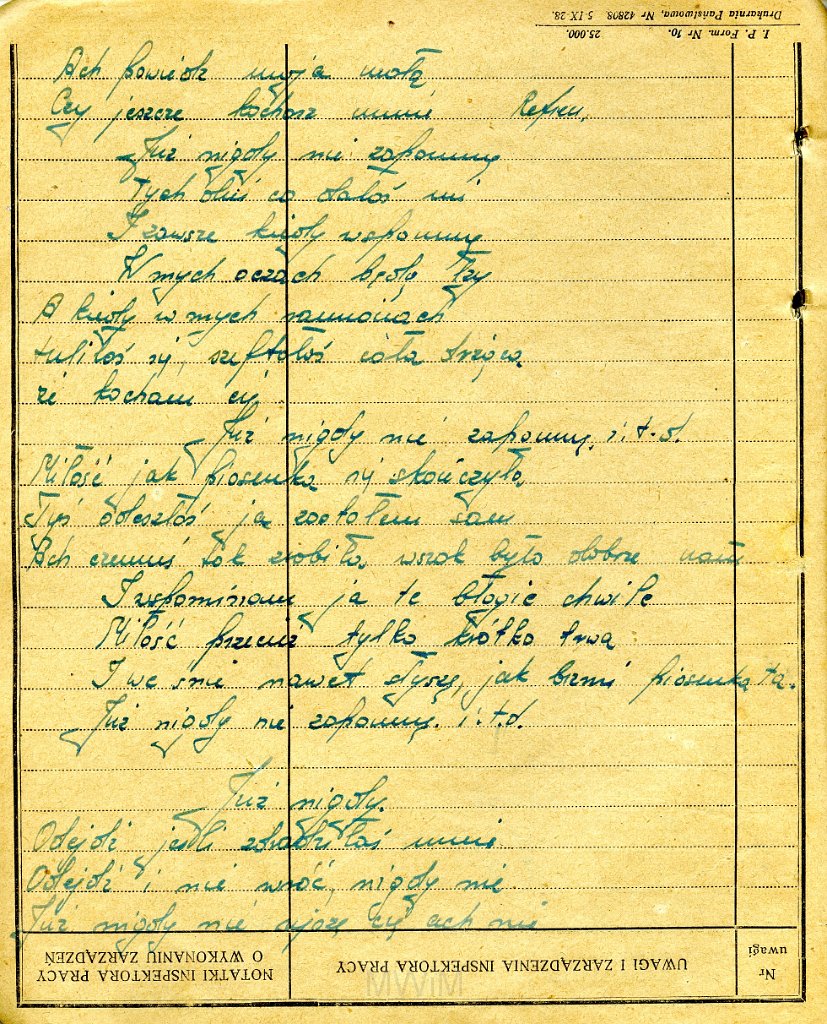 I. P. Form. Nr 10. 25.000.
Drukarnia Państwowa, Nr 42808. 5 IX 28.
Ach powiedz moja mała
Czy jeszcze kochasz mnie Refren,
Już nigdy nie zapomnę
Tych dni co dałaś mi
I zawsze kiedy wspomnę
W mych oczach będą łzy
A kiedy w mych ramionach
tuliłaś się, szeptałaś cała drżąca
że kocham cię
Już nigdy nie zapomnę, i.t.d.
Miłość jak piosenka się skończyła,
Tyś odeszłaś ja zostałem sam
Ach czemuś tak zrobiła, wszak było dobrze nam
I wspominam ja te błogie chwile
Miłość przecież tylko krótko trwa
I we śnie nawet słyszę, jak brzmi piosenka ta.
Już nigdy nie zapomnę. i.t.d.
Już nigdy.
Odejdź jeśli zdradziłaś mnie
Odejdź i nie wróć, nigdy nie
Już nigdy nie ujrzę cię ach nie
NOTATKI INSPEKTORA PRACY O WYKONANIU ZARZĄDZEŃ
UWAGI I ZARZĄDZENIA INSPEKTORA PRACY
Nr uwagi
MWiM